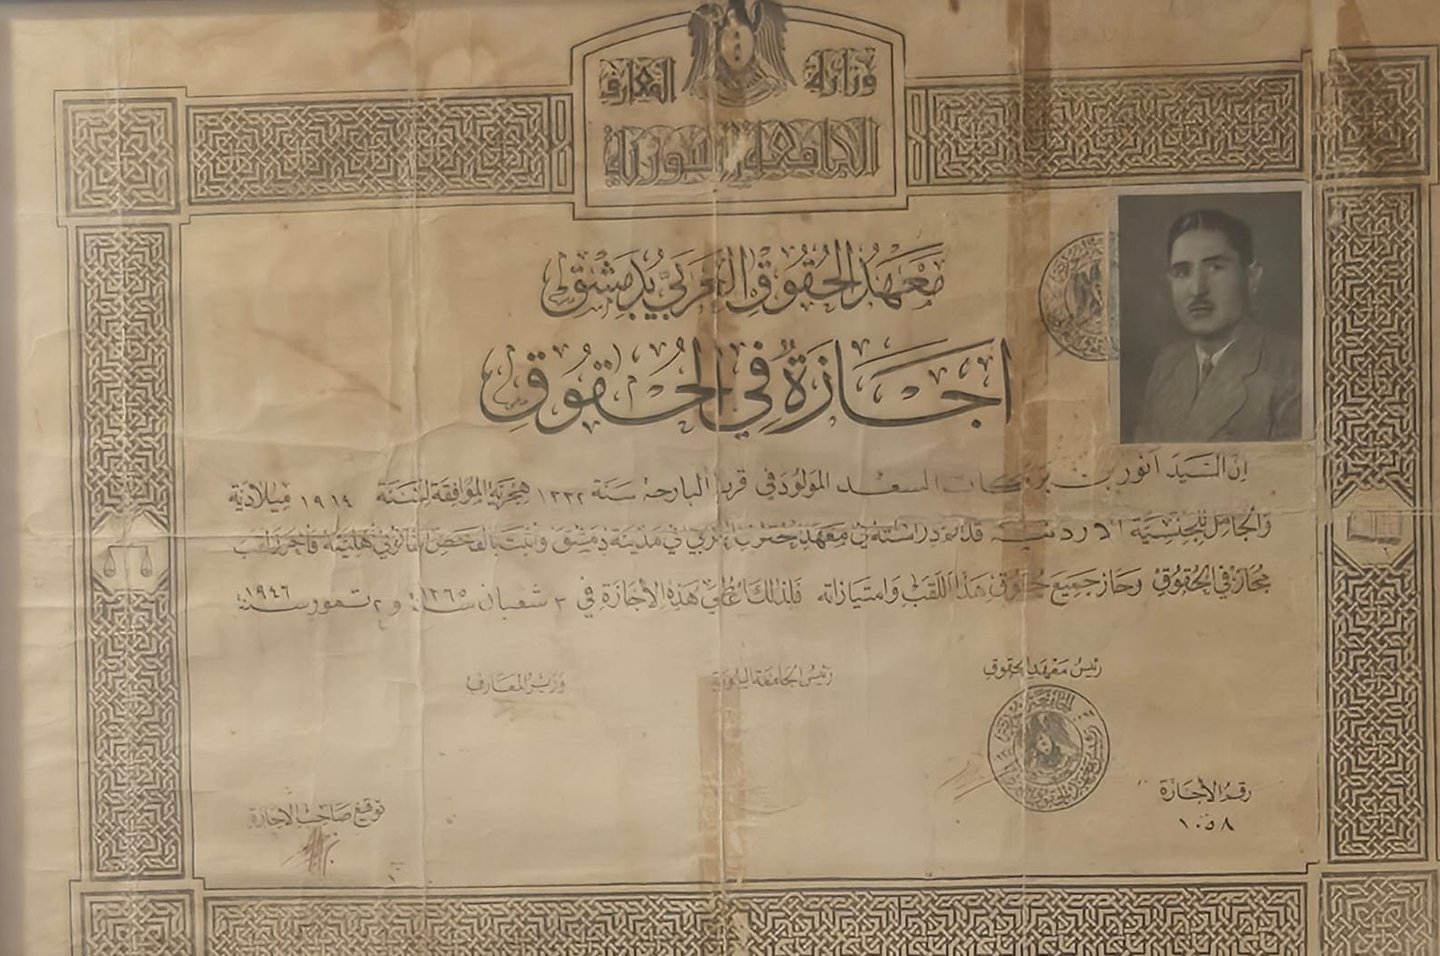 وزارة المعارف
الجامعة السورية
مَعْهَدُ الحُقُوقِ العَرَبِيّ بِدِمَشْق
اجَازَةٌ فِي الحُقُوقِ
ان السَيّد انور بن بركات السعد المولود في قرية البارحة سنة ١٣٣٢ هجرية الموافقة لسنة ١٩١٤ ميلادية
والحامل للجنسية الاردنية قد تم دراسته في معهد الحقوق العربي في مدينة دمشق واثبت بالفحص القانوني اهليته فاحرز لقب
مجاز في الحقوق وحاز جميع حقوق هذا اللقب وامتيازاته فلذلك اعطي هذه الاجازة في ٣ شعبان سنة ١٣٦٥ و ٢ تموز سنة ١٩٤٦
رئيس معهد الحقوق
رئيس الجامعة السورية
وزير المعارف
رقم الاجازة
١٠٥٨
توقيع صاحب الاجازة